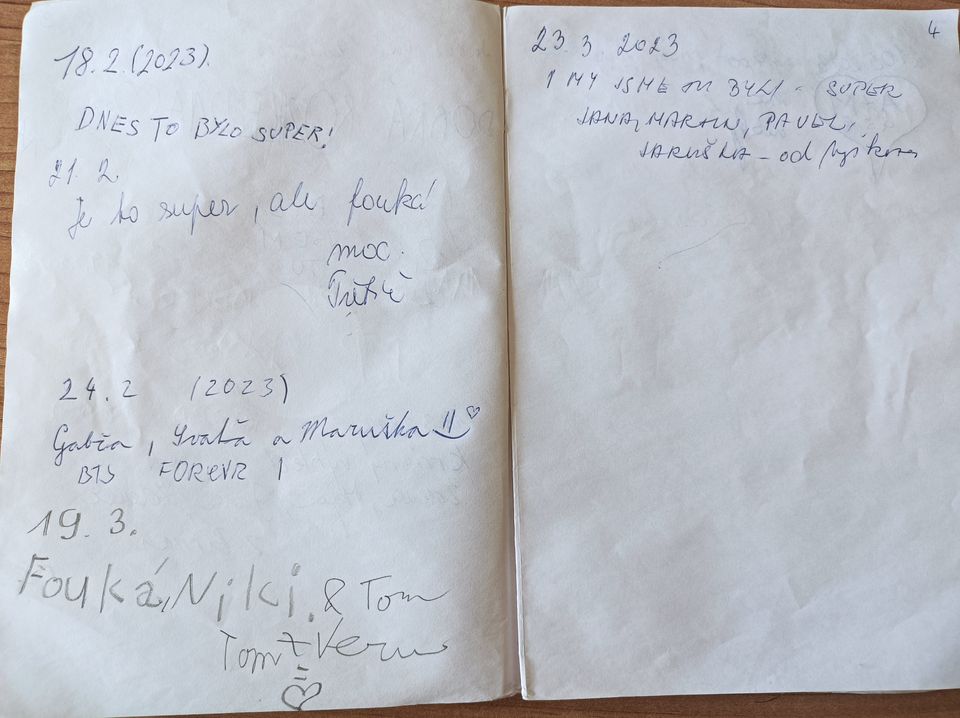 18.2.(2023).
DNES TO BYLO SUPER!
21. 2.
Je to super, ale fouká
moc.
24. 2 (2023)
Gabča, Ivača a Maruška
BTS FOREVR !
19. 3.
Fouká, Niki. & Tom
Tom + Verus
=
4
23. 3. 2023
I MY JSME TU BYLI - SUPER
JANA, MARTIN, PAVEL,
JARUŠKA - od